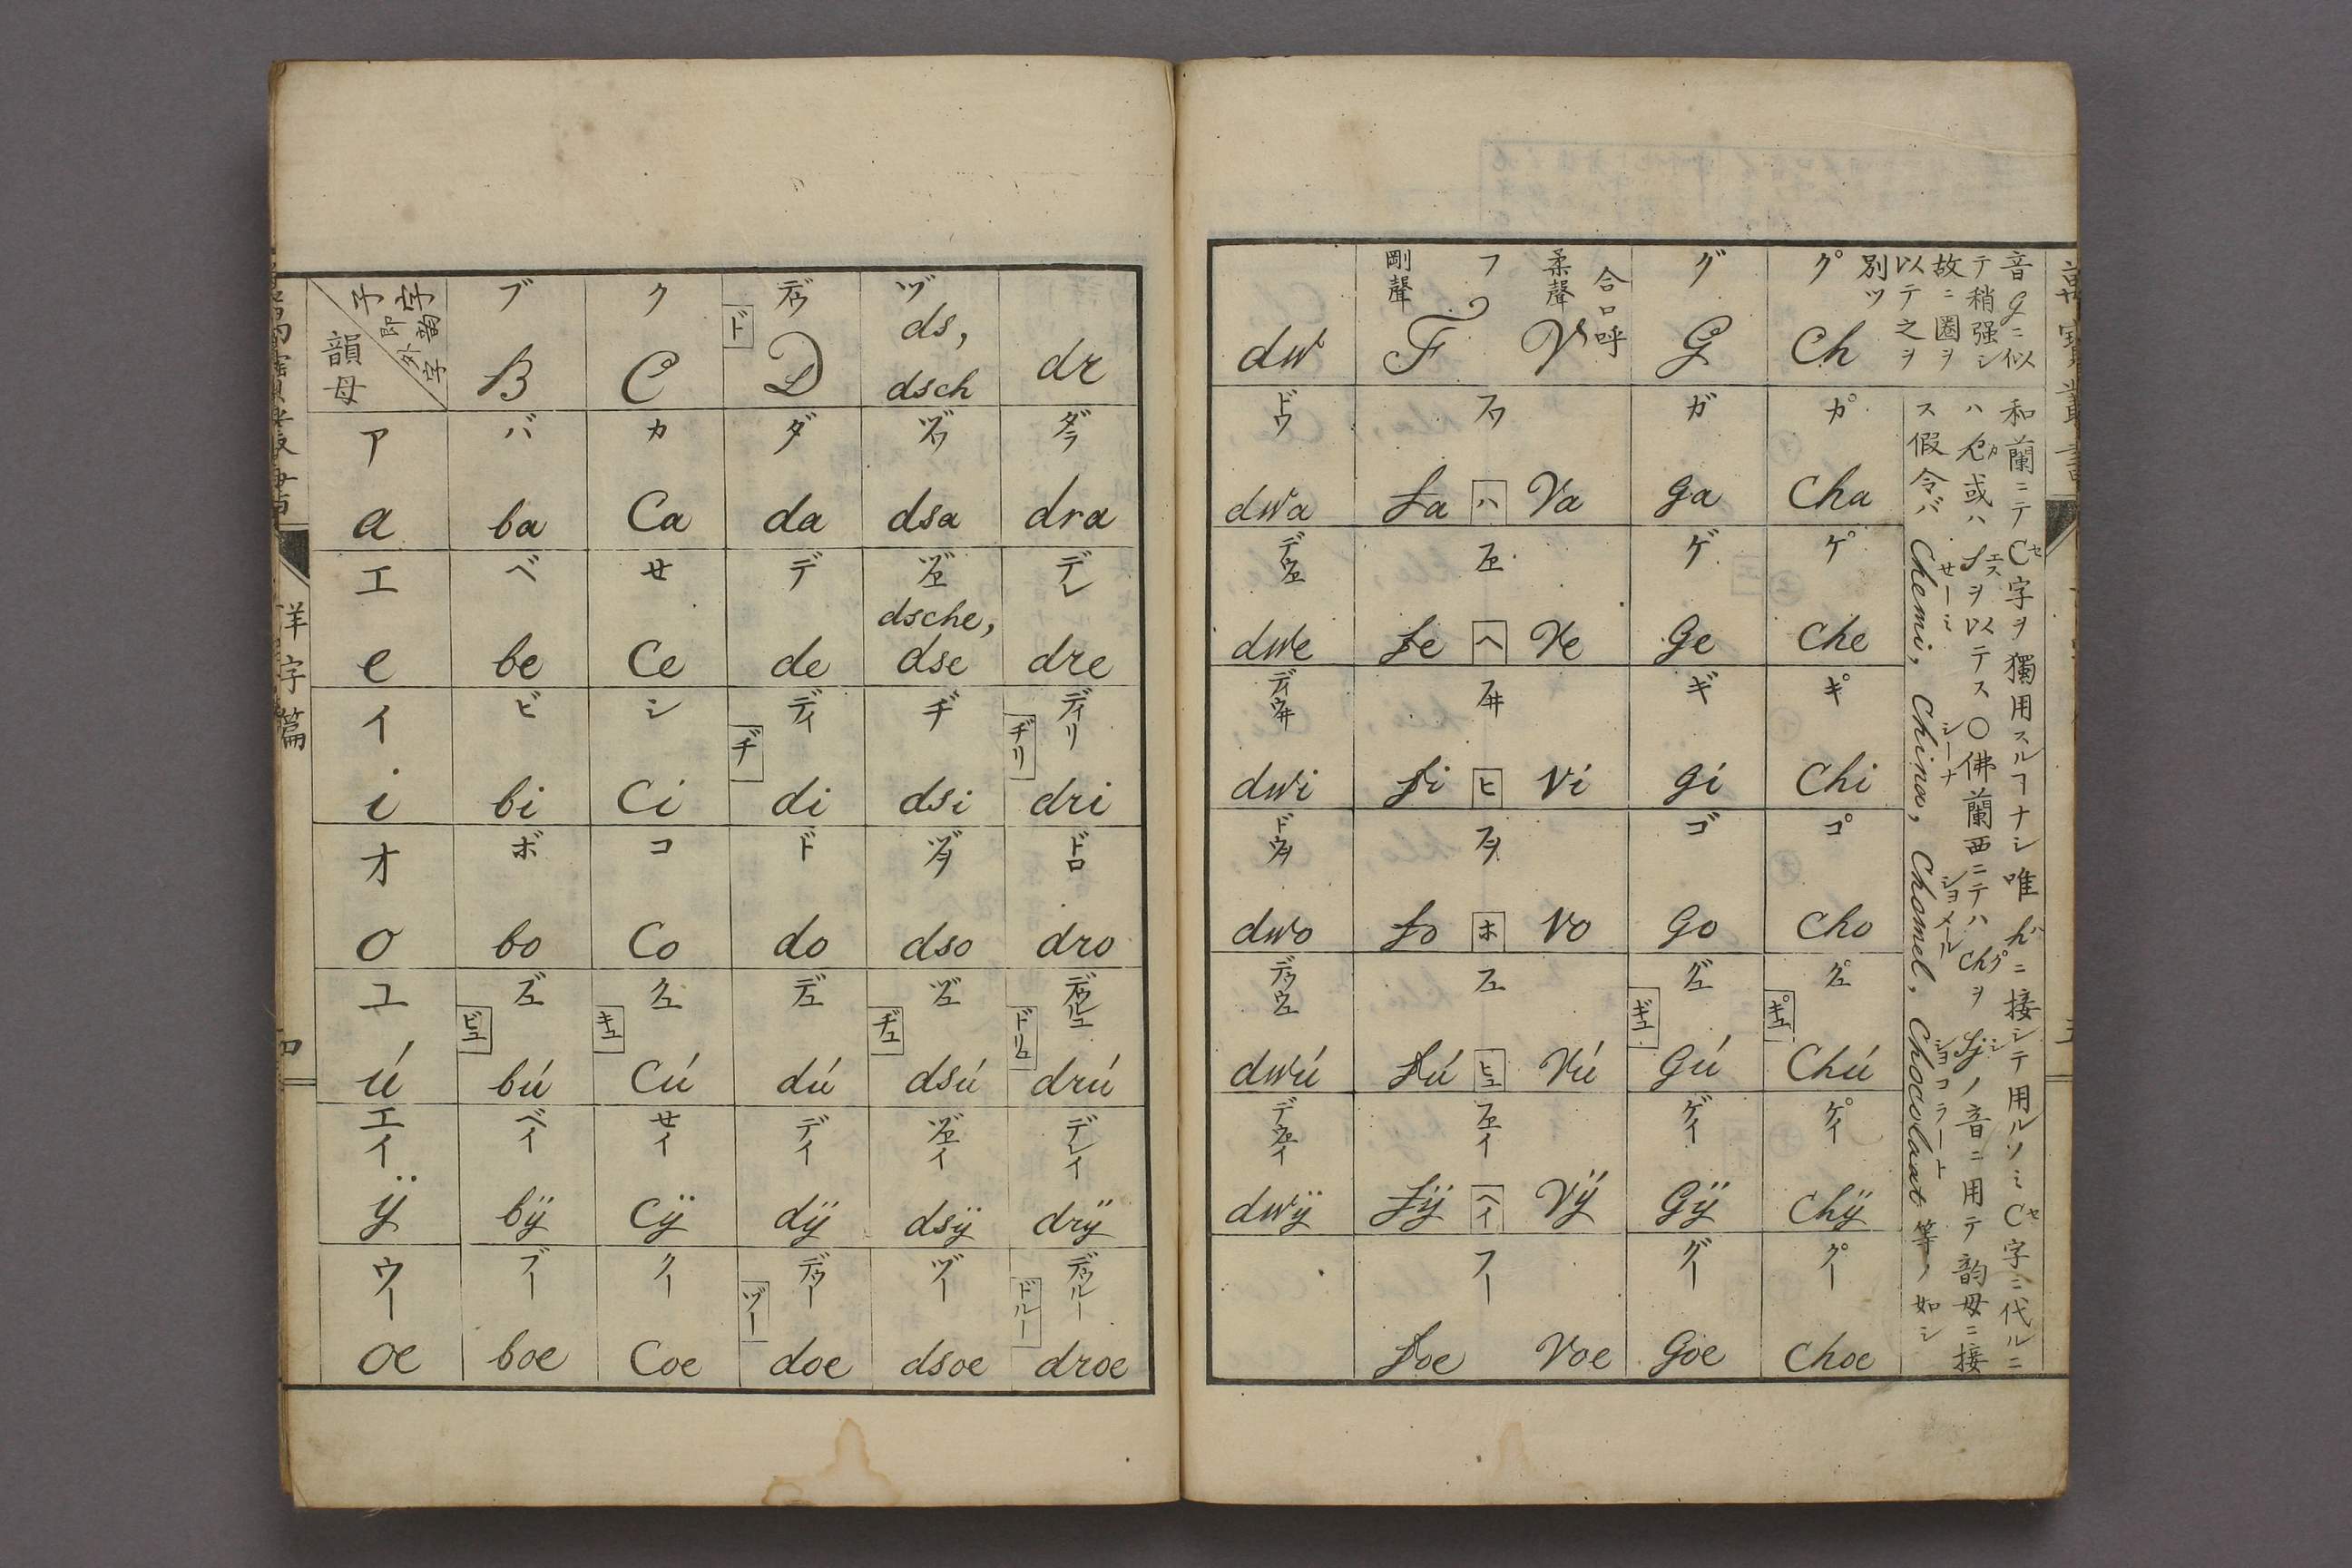 子字
即韵
外字
韻母
ブ B
ク C
デゥ ド D
ヅ ds, dsch
dr
ア a
バ ba
カ Ca
ダ da
ヅワ dsa
ダラ dra
エ e
ベ be
セ Ce
デ de
ヅヱ dsche, dse
デレ dre
イ i
ビ bi
シ Ci
ディ ヂ di
ヂ dsi
ディリ ヂリ dri
オ o
ボ bo
コ Co
ド do
ヅヲ dso
ドロ dro
ユ ú
ブユ ビユ bú
クユ キユ Cú
デユ dú
ヅユ ヂユ dsú
デゥルユ ドリユ drú
エイ ÿ
ベイ bÿ
セイ Cÿ
デイ dÿ
ヅヱイ dsÿ
デレイ drÿ
ウー oe
ブー boe
クー Coe
デゥー ヅー doe
ヅー dsoe
デゥルー ドルー droe
洋字篇
dw
剛聲 フ 柔聲 合口呼
F V
グ G
ク゚ Ch
ドワ dwa
フワ fa ハ Va
ガ ga
カ゚ Cha
デウヱ dwe
フヱ fe ヘ Ve
ゲ ge
ケ゚ Che
ディウヰ dwi
フヰ fi ヒ Vi
ギ gi
キ゚ Chi
ドウヲ dwo
フヲ fo ホ Vo
ゴ go
コ゚ Cho
デゥウユ dwú
フユ fú ヒユ Vú
グユ ギユ gú
ク゚ユ キ゚ユ Chú
デウヱイ dwÿ
フヱイ fÿ ヘイ Vÿ
ゲイ gÿ
ケ゚イ Chÿ
フー foe Voe
グー goe
ク゚ー Choe
音gニ似
テ稍强シ
故ニ圏ヲ
以テ之ヲ
別ツ
和蘭ニテC字ヲ獨用スルヿナシ唯hニ接シテ用ルノミC字ニ代ルニ
ハk或ハsヲ以テス〇佛蘭西ニテハchヲsjノ音ニ用テ韵母ニ接
ス假令バChemi, China, Chomel, Chocolaat等ノ如シ
セーミ シーナ ショメール ショコラート